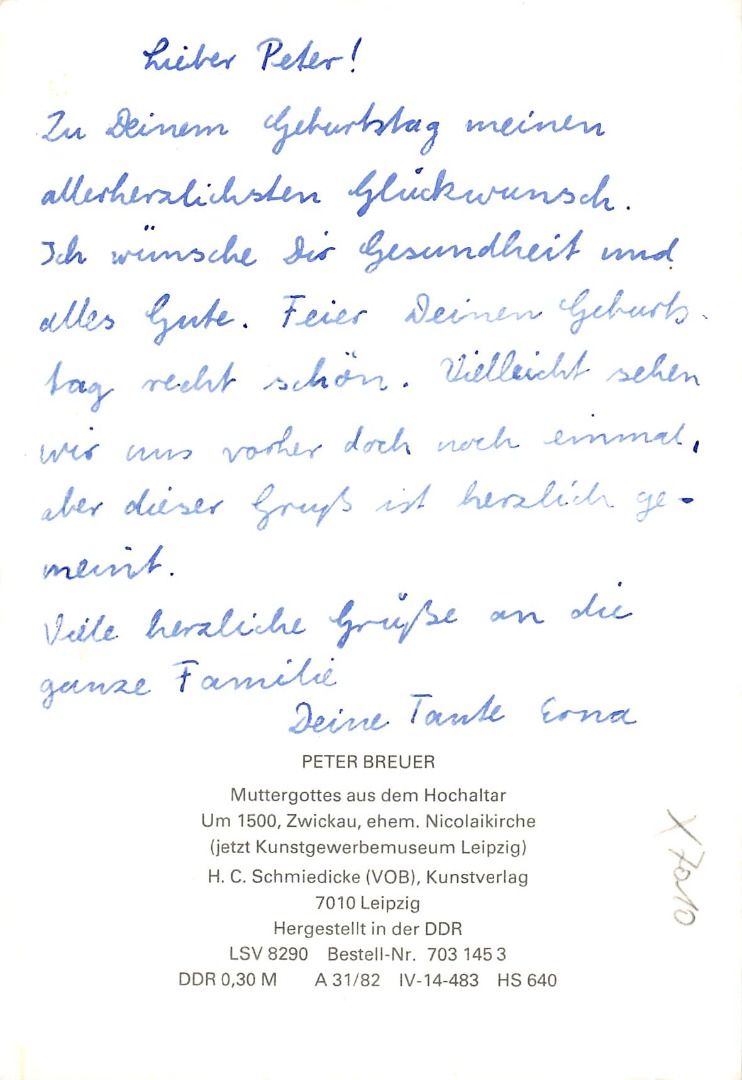 Lieber Peter!
Zu Deinem Geburtstag meinen
allerherzlichsten Glückwunsch.
Ich wünsche Dir Gesundheit und
alles Gute. Feier Deinen Geburts-
tag recht schön. Vielleicht sehen
wir uns vorher doch noch einmal,
aber dieser Gruß ist herzlich ge-
meint.
Viele herzliche Grüße an die
ganze Familie
Deine Tante Erna
PETER BREUER
Muttergottes aus dem Hochaltar
Um 1500, Zwickau, ehem. Nicolaikirche
(jetzt Kunstgewerbemuseum Leipzig)
H. C. Schmiedicke (VOB), Kunstverlag
7010 Leipzig
Hergestellt in der DDR
LSV 8290 Bestell-Nr. 703 145 3
DDR 0,30 M A 31/82 IV-14-483 HS 640